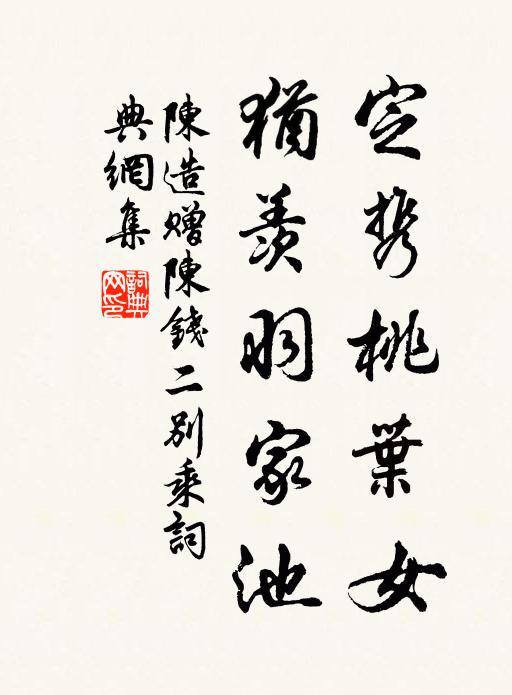 定携桃葉女
猶羨習家池
陳造贈陳錢二別乘詞
典網集
詞典網印